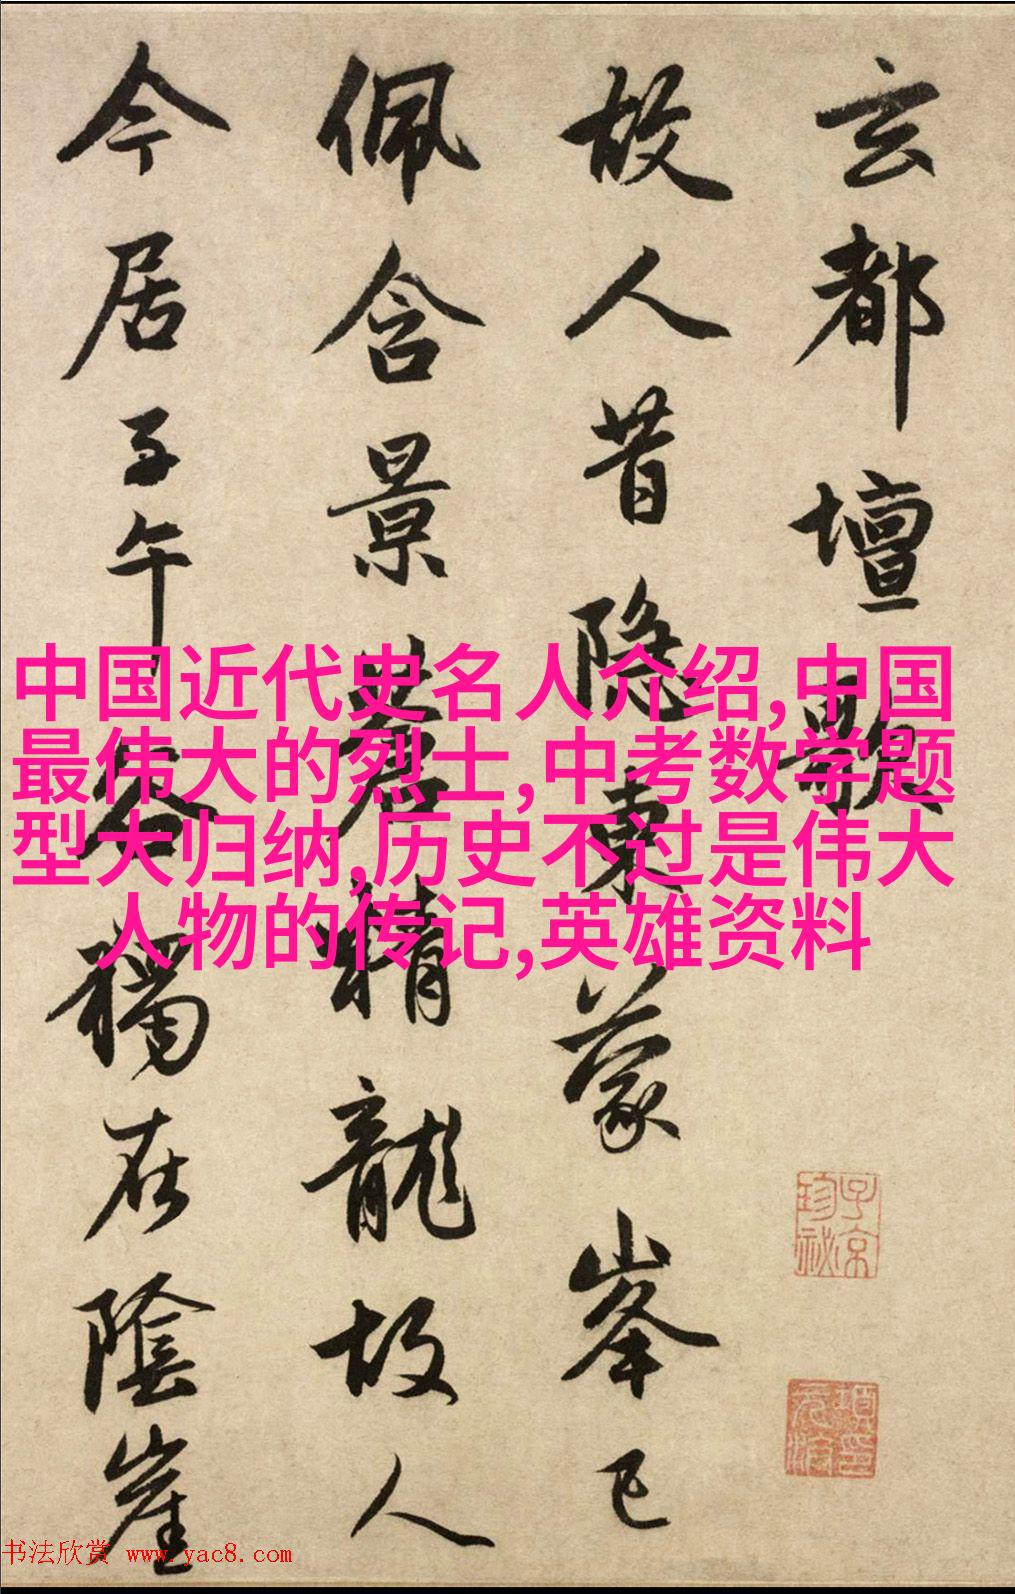 玄都壇歌
故人昔隐東蒙峯已
佩含景蒼精龍故人
今居子午谷獨在陰崖
中国近代史名人介绍,中国
最伟大的烈士,中考数学题
型大归纳,历史不过是伟大
人物的传记,英雄资料
子京
珍祕
项元汴印
书法欣赏 www.yac8.com